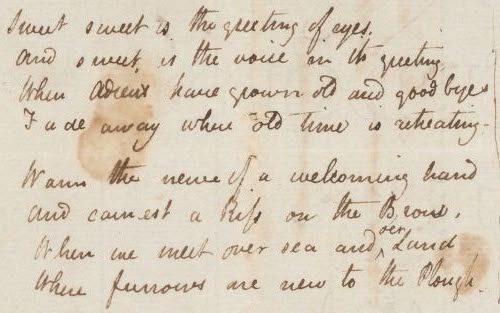 Sweet sweet is the greeting of eyes,
And sweet is the voice in its greeting,
When Adieux have grown old and goodbyes
Fade away where old time is retreating—
Warm the nerve of a welcoming hand
And earnest a Kiss on the Brow,
When we meet over sea and over Land
Where furrows are new to the Plough.